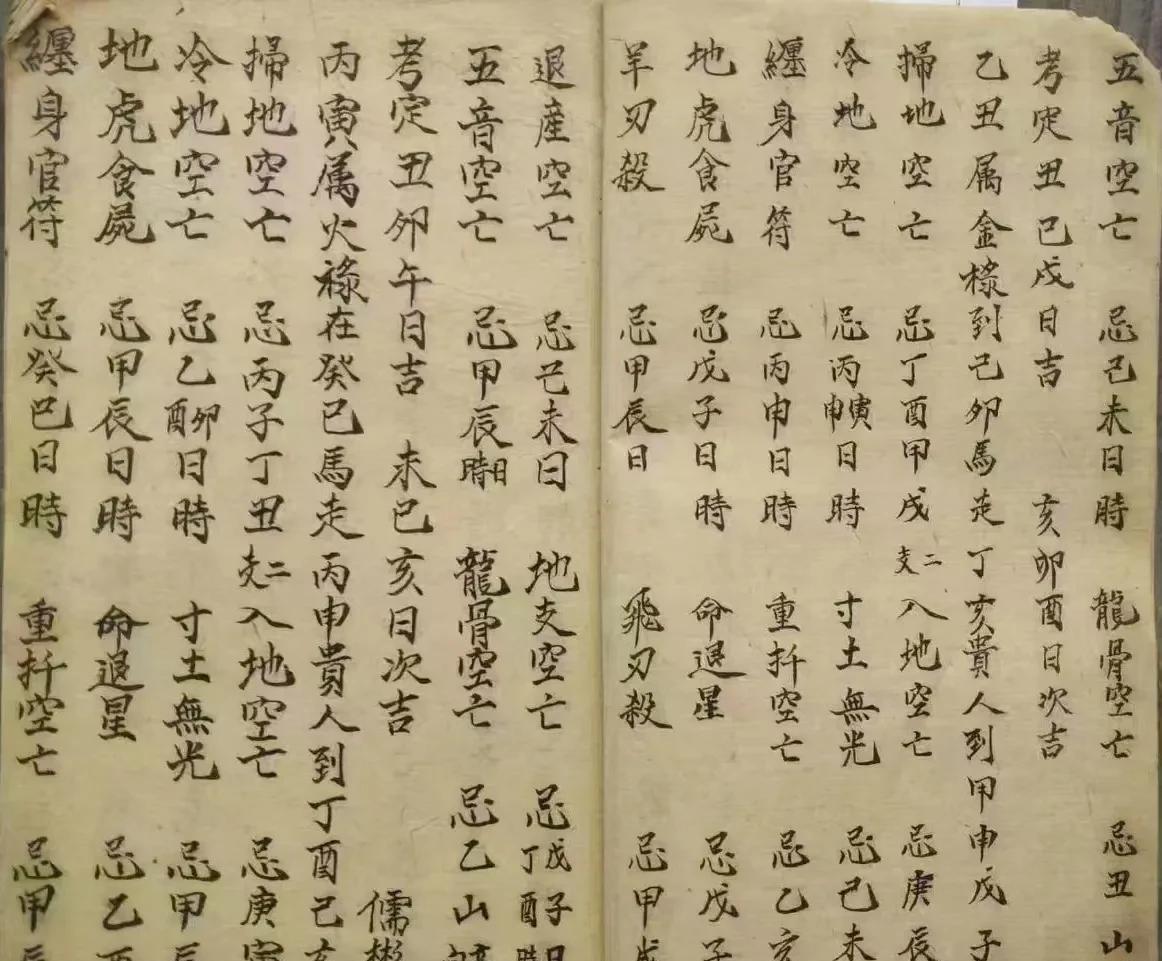 五音空亡 忌己未日時 龍骨空亡 忌丑山
考定丑巳戌日吉 亥卯酉日次吉
乙丑属金祿到己卯馬走丁亥貴人到甲申戊子
掃地空亡 忌丁酉甲戌二支入地空亡 忌庚辰
冷地空亡 忌丙寅申日時 寸土無光 忌己未
纏身官符 忌丙申日時 重拆空亡 忌乙亥
地虎食屍 忌戊子日時 命退星 忌戊子
羊刃殺 忌甲辰日 飛刃殺 忌甲戌
退産空亡 忌己未日 地支空亡 忌戊子日丁酉時
五音空亡 忌甲辰日時 龍骨空亡 忌乙山
考定丑卯午日吉 未巳亥日次吉 儒彬
丙寅属火祿在癸巳馬走丙申貴人到丁酉己亥
掃地空亡 忌丙子丁丑二支入地空亡 忌庚寅
冷地空亡 忌乙卯酉日時 寸土無光 忌甲辰
地虎食屍 忌甲辰日時 命退星 忌乙酉
纏身官符 忌癸巳日時 重拆空亡 忌甲辰